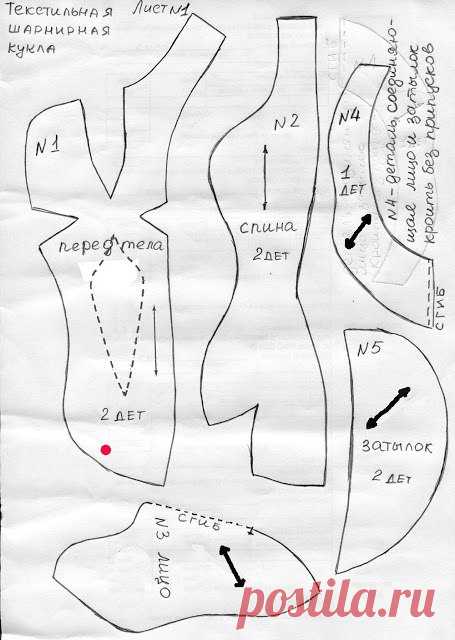 Текстильная
шарнирная
кукла
Лист №1
№1
перед тела
2 дет
№2
спина
2 дет
№4
1
дет
№4-деталь, соединяю-
щая лицо и затылок
кроить без припусков
сгиб
сгиб
№5
затылок
2 дет
сгиб
№3 лицо
postila.ru